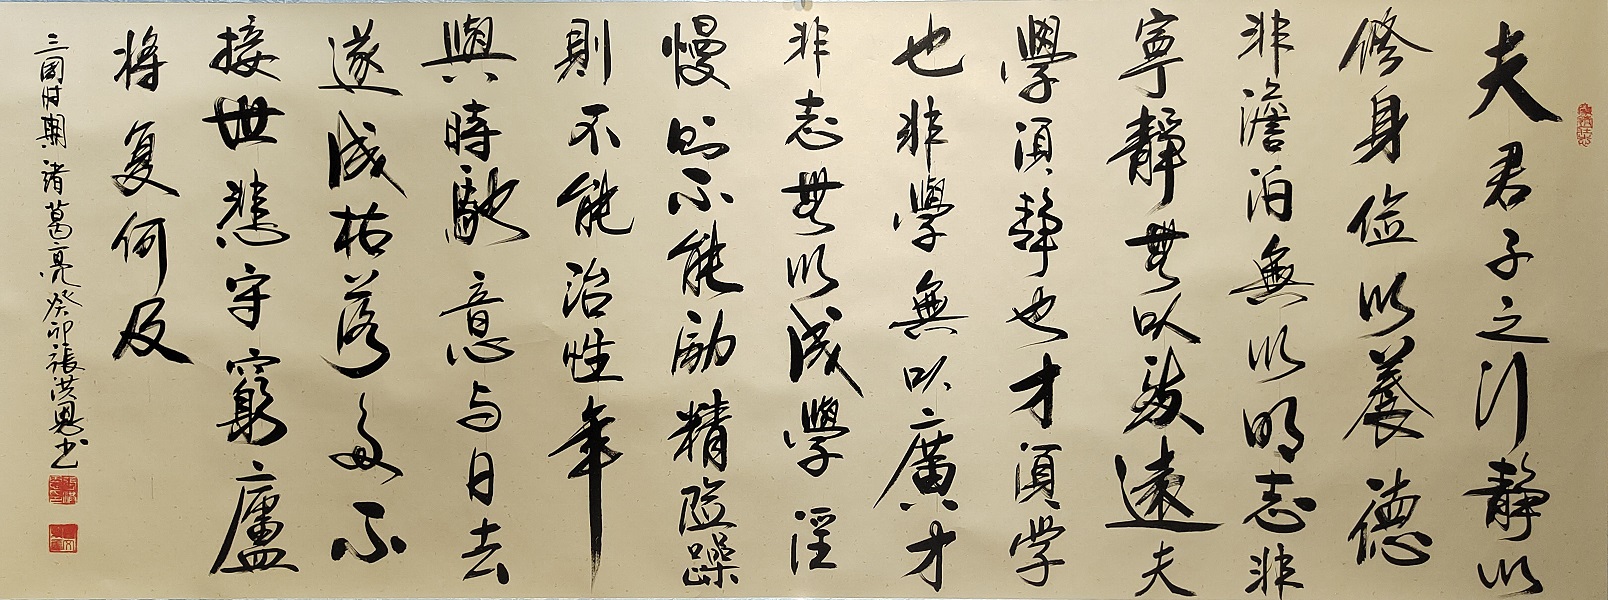 夫君子之行静以
修身俭以养德
非澹泊無以明志非
寧靜無以致遠夫
學須靜也才須学
也非學無以廣才
非志無以成學淫
慢则不能励精险躁
則不能治性年
與時馳意与日去
遂成枯落多不
接世悲守窮廬
将复何及
三國时期诸葛亮癸卯張洪恩书